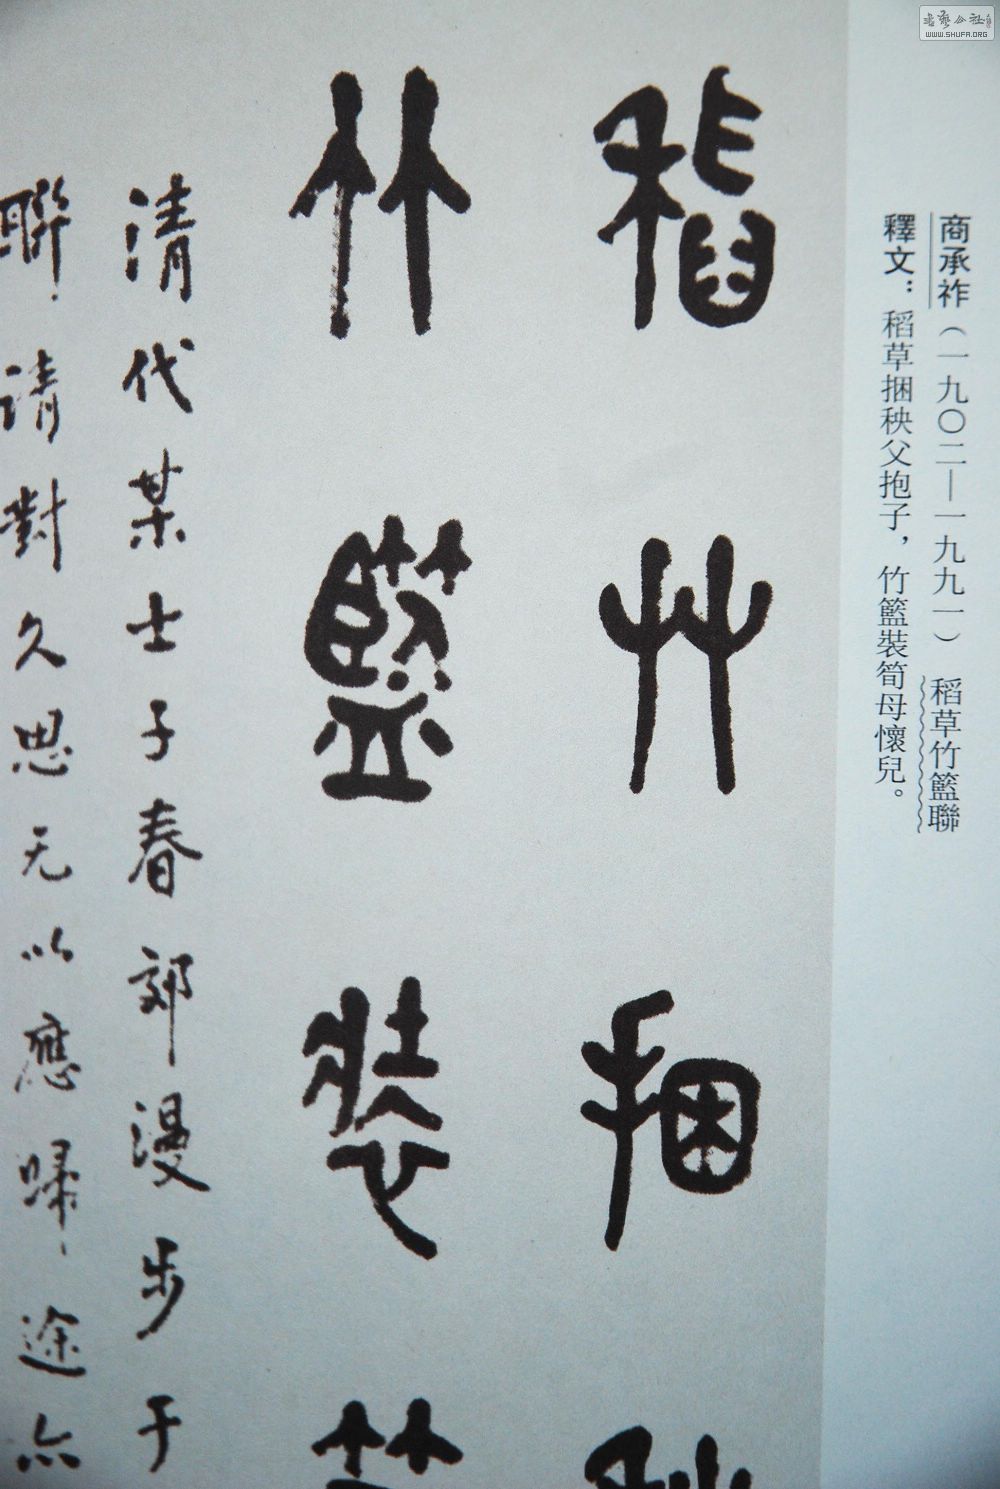 商承祚（一九〇二—一九九一） 稻草竹籃聯
釋文：稻草捆秧父抱子，竹籃裝筍母懷兒。
稻草捆秧
竹籃裝筍
清代某士子春郊漫步于
聯请對久思无以應歸途亦
書藝公社
WWW.SHUFA.ORG